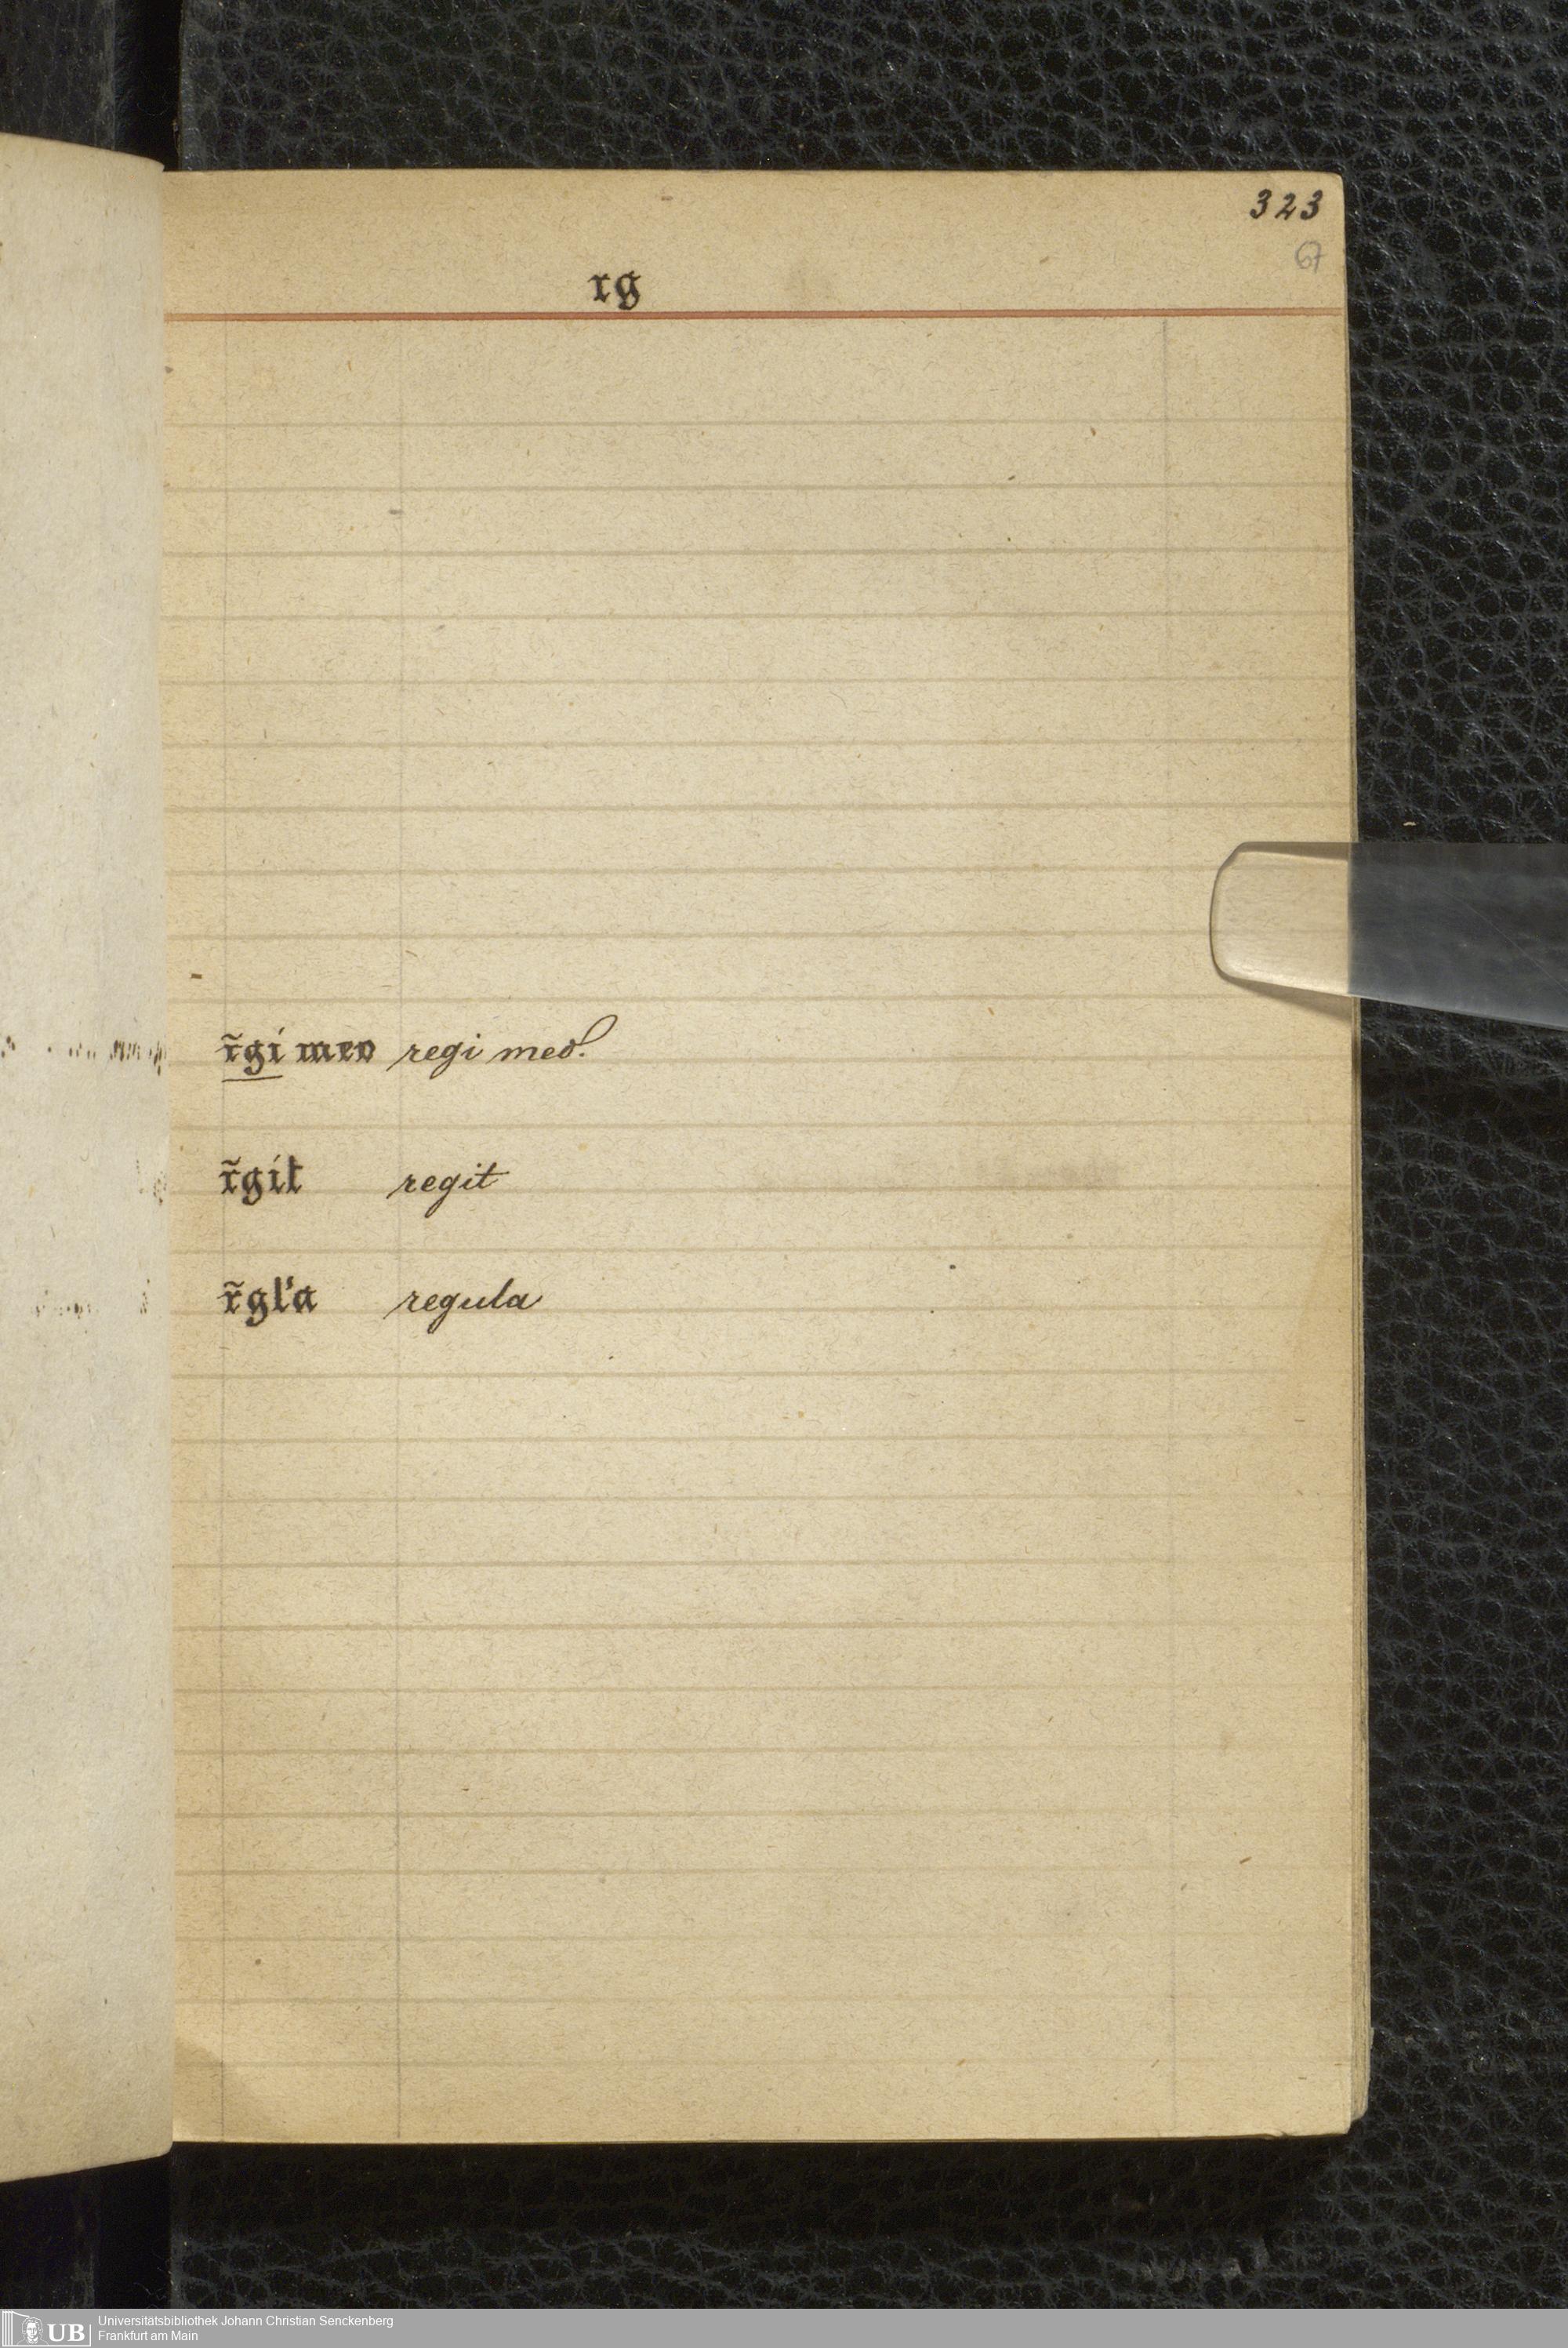 323
67
rg
r̃gi meo regi meo!
r̃git regit
r̃gl'a regula
UB Universitätsbibliothek Johann Christian Senckenberg
Frankfurt am Main